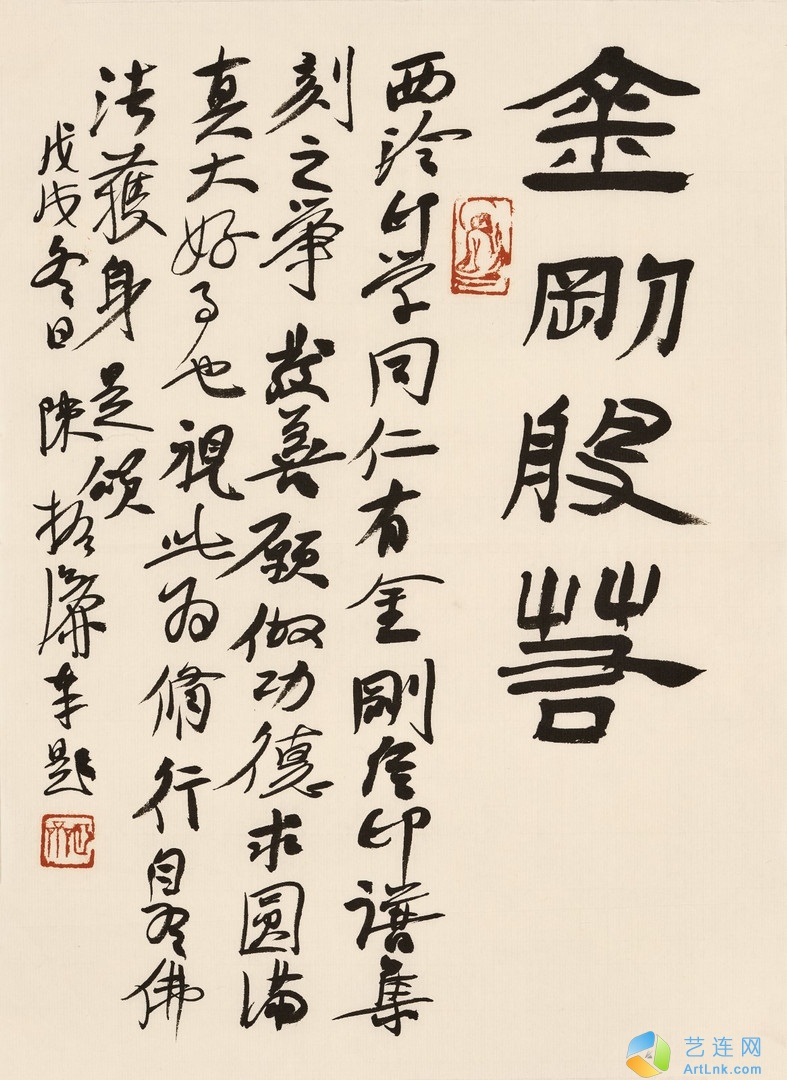 金剛般若
西泠印学同仁有金剛经印譜集
刻之举發善願做功德求圓满
真大好事也視此为脩行自 佛
法獲身是頌
戊戌冬日陳振濂奉題
艺连网
ArtLnk.com